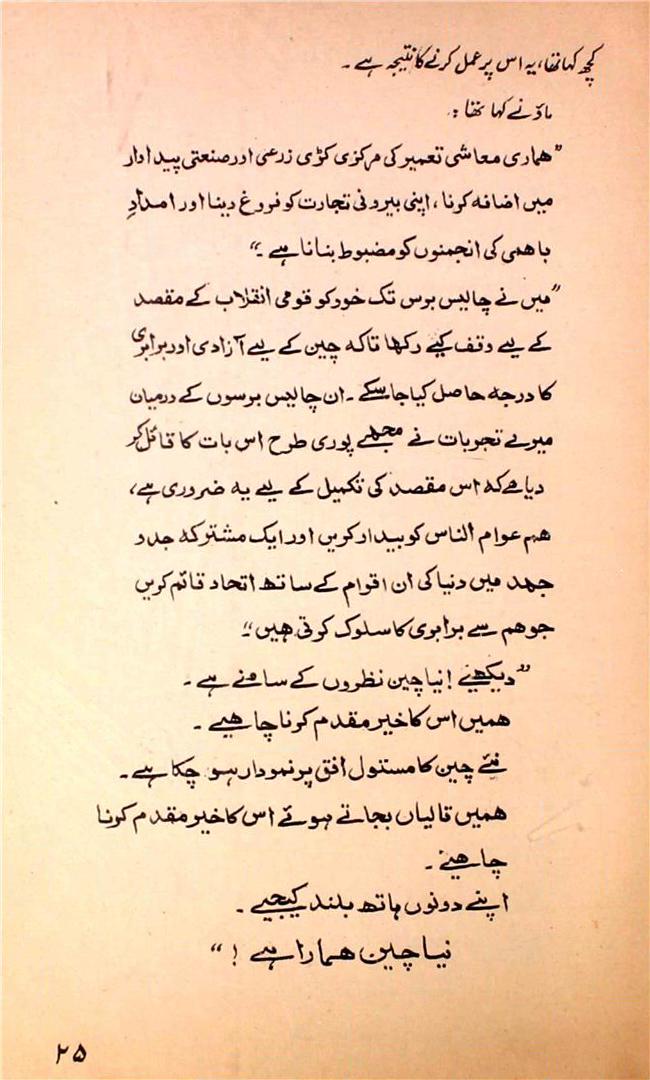 کچھ کہا تھا، یہ اس پر عمل کرنے کا نتیجہ ہے ۔
ماؤ نے کہا تھا :
”ہماری معاشی تعمیر کی مرکزی کڑی زرعی اور صنعتی پیداوار
میں اضافہ کرنا ، اپنی بیرونی تجارت کو فروغ دینا اور امدادِ
باہمی کی انجمنوں کو مضبوط بنانا ہے ۔“
”میں نے چالیس برس تک خود کو قومی انقلاب کے مقصد
کے لیے وقف کیے رکھا تاکہ چین کے لیے آزادی اور برابری
کا درجہ حاصل کیا جا سکے ۔ ان چالیس برسوں کے درمیان
میرے تجربات نے مجھے پوری طرح اس بات کا قائل کر
دیا ہے کہ اس مقصد کی تکمیل کے لیے یہ ضروری ہے،
ہم عوام الناس کو بیدار کریں اور ایک مشترکہ جدو
جہد میں دنیا کی ان اقوام کے ساتھ اتحاد قائم کریں
جو ہم سے برابری کا سلوک کرتی ہیں“
”دیکھئے ! نیا چین نظروں کے سامنے ہے ۔
ہمیں اس کا خیر مقدم کرنا چاہیے ۔
نئے چین کا مستول افق پر نمودار ہو چکا ہے ۔
ہمیں تالیاں بجاتے ہوئے اس کا خیر مقدم کرنا
چاہئے ۔
اپنے دونوں ہاتھ بلند کیجیے ۔
نیا چین ہمارا ہے ! “
۲۵